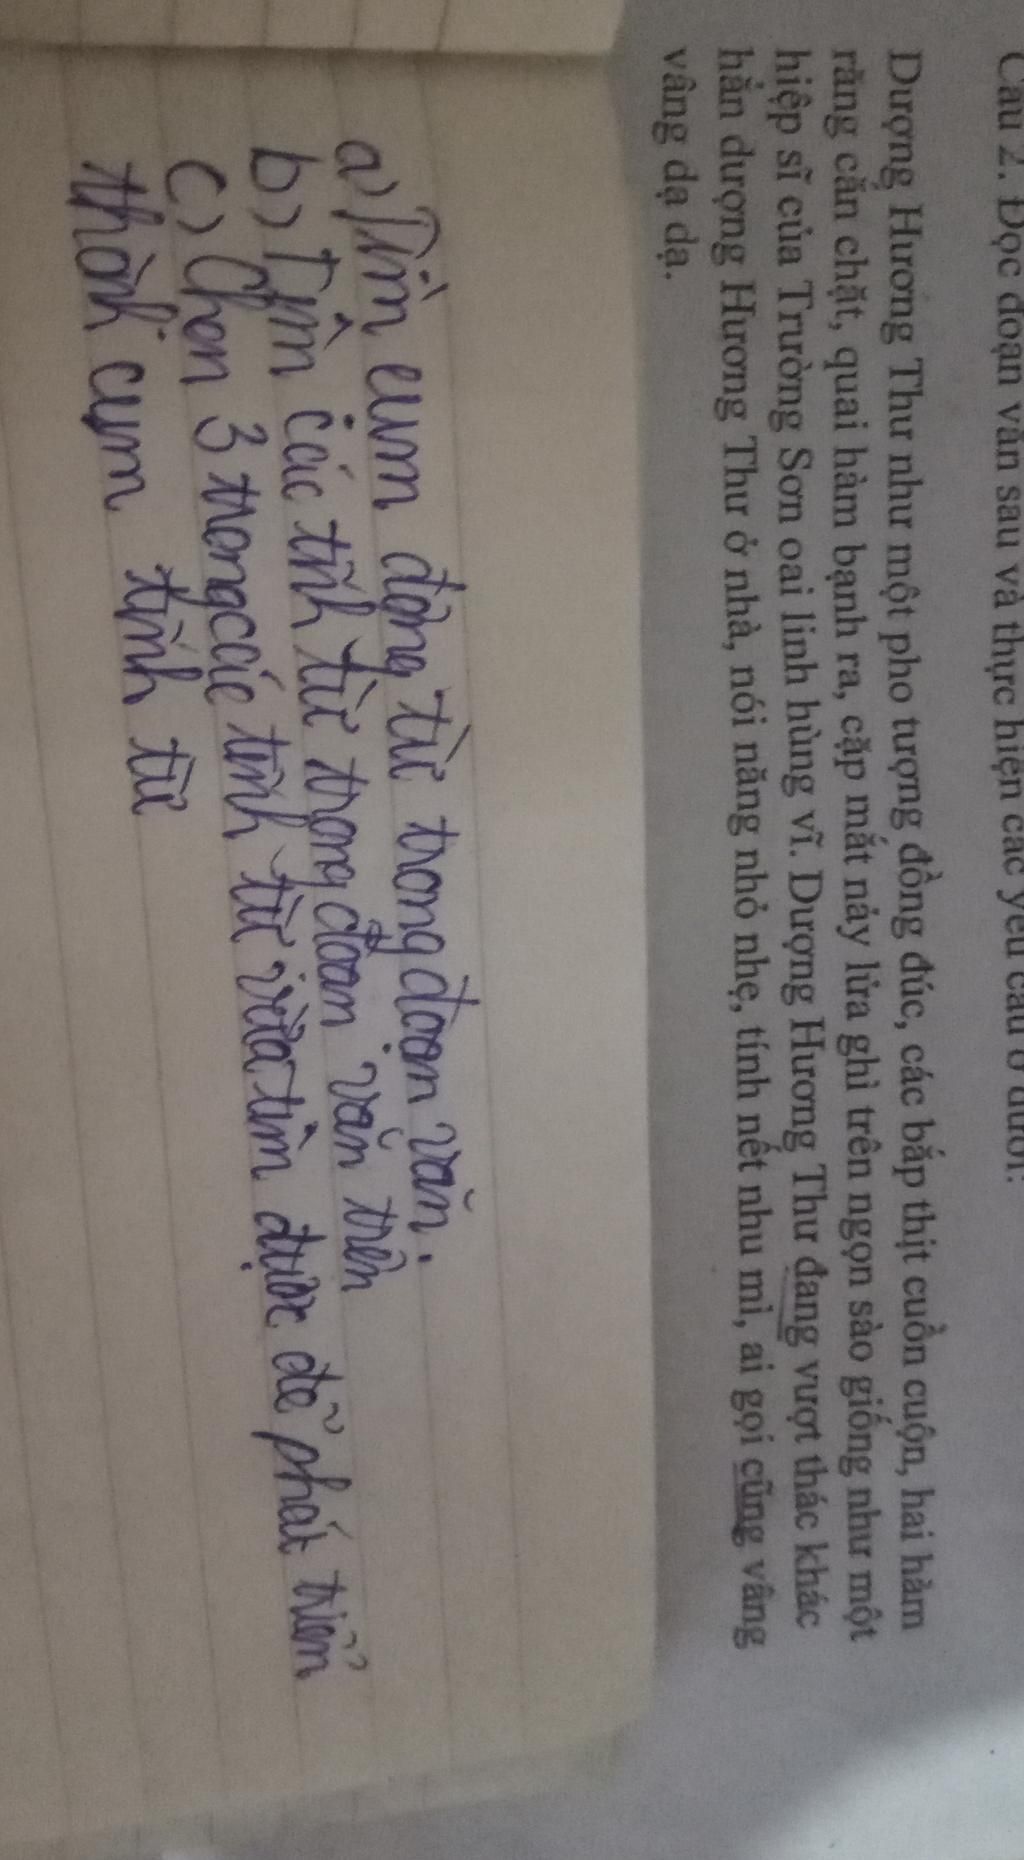 Câu 2. Đọc đoạn văn sau và thực hiện các yêu cầu ở dưới:
Dượng Hương Thư như một pho tượng đồng đúc, các bắp thịt cuồn cuộn, hai hàm
răng cắn chặt, quai hàm bạnh ra, cặp mắt nảy lửa ghì trên ngọn sào giống như một
hiệp sĩ của Trường Sơn oai linh hùng vĩ. Dượng Hương Thư đang vượt thác khác
hẳn dượng Hương Thư ở nhà, nói năng nhỏ nhẹ, tính nết nhu mì, ai gọi cũng vâng
vâng dạ dạ.
a) Tìm cụm động từ trong đoạn văn.
b) Tìm các tính từ trong đoạn văn trên
c) Chọn 3 trong các tính từ vừa tìm được để phát triển
thành cụm tính từ